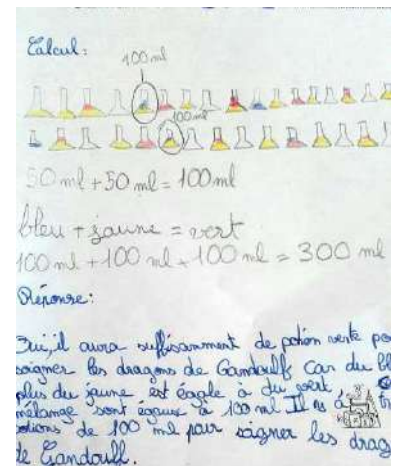 Calcul:
100 ml
100 ml
50 ml + 50 ml = 100 ml
bleu + jaune = vert
100 ml + 100 ml + 100 ml = 300 ml
Réponse:
Oui, il aura suffisamment de potion verte
soigner les dragons de Gandoulf Car du
plus du jaune est égale à du vert
mélange sont égaux à 100 ml Il
de 100 ml pour soigner les
de Gandoulf.